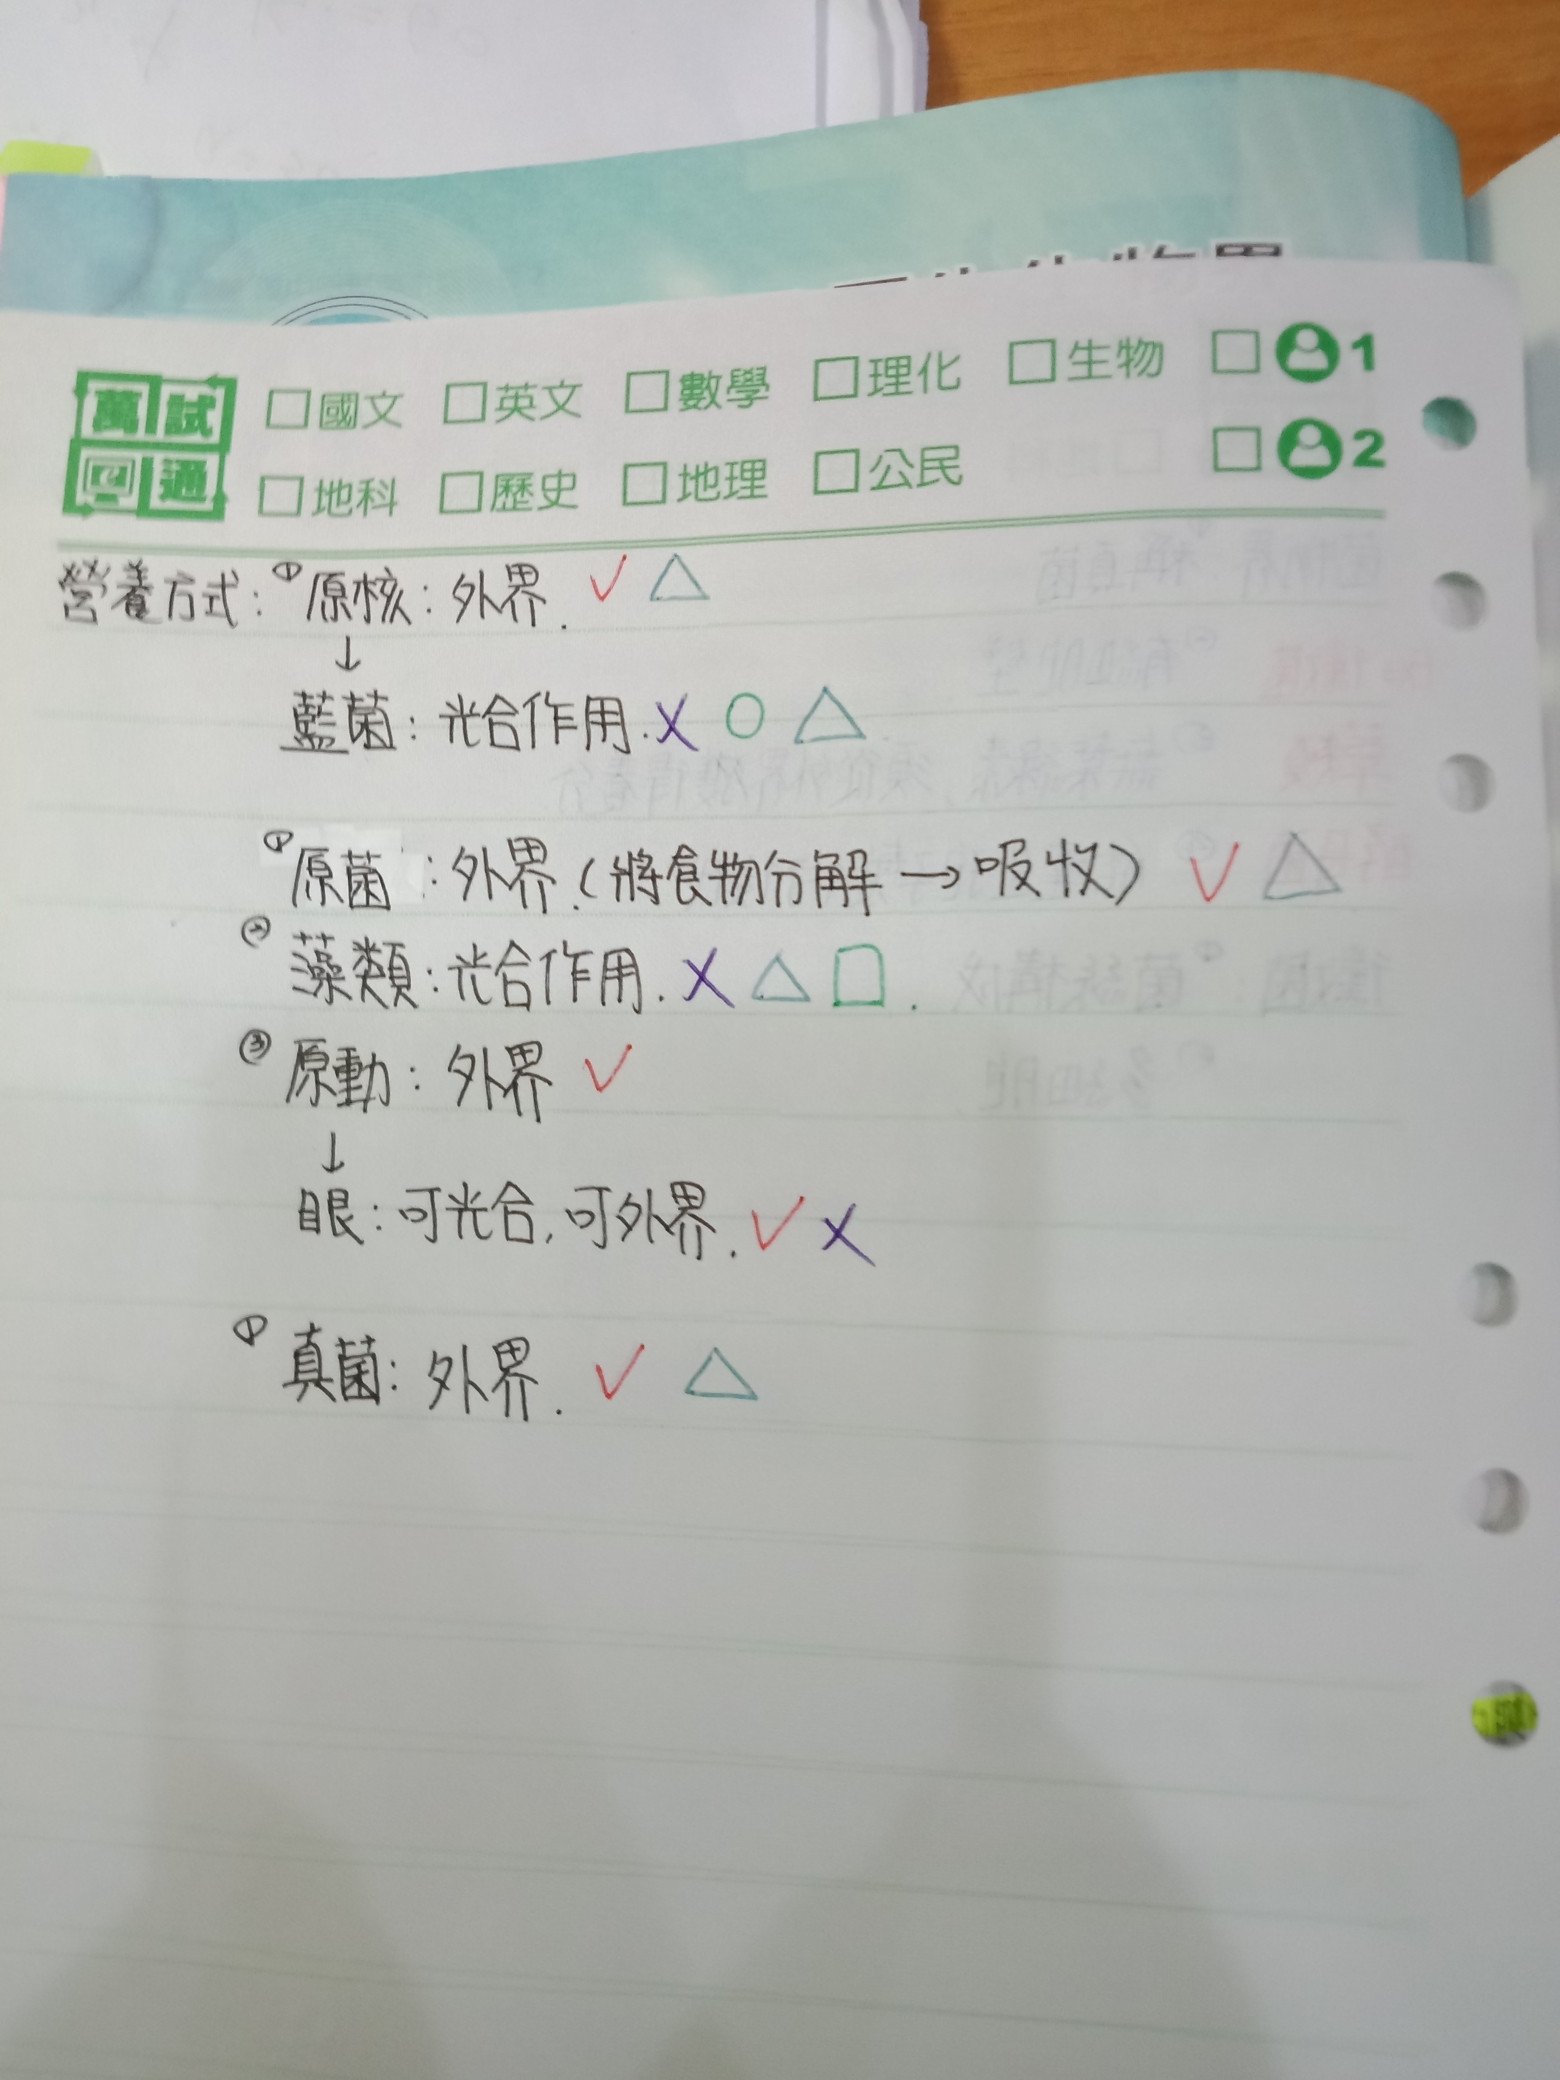 萬試通
□國文 □英文 □數學 □理化 □生物 □ 1
□地科 □歷史 □地理 □公民 □ 2
營養方式：①原核：外界. ✓ △
↓
藍菌：光合作用. X ○ △
①原菌：外界.(將食物分解→吸收) ✓ △
②藻類：光合作用. X △ □.
③原動：外界 ✓
↓
眼：可光合,可外界. ✓ X
①真菌：外界. ✓ △